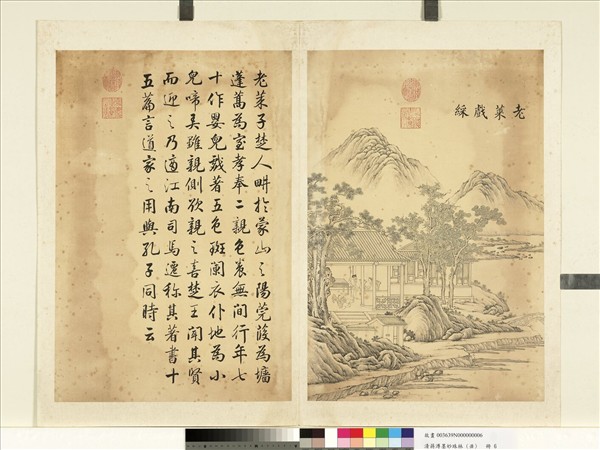 老萊戲綵
老萊子楚人畊於蒙山之陽莞葭為墻
蓬蒿為室孝奉二親色養無間行年七
十作嬰兒戲著五色斑闌衣仆地為小
兒啼弄雛親側欲親之喜楚王聞其賢
而迎之乃適江南司馬遷稱其著書十
五篇言道家之用與孔子同時云
故畫 003639N000000006
墨妙珠林 6